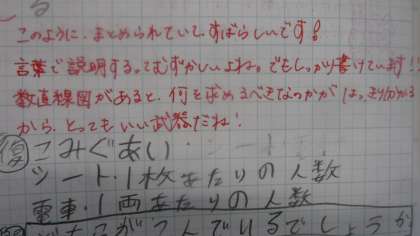 このように、まとめられていて、すばらしいです!
言葉で説明するってむずかしいよね。でもしっかり書けています!!
数直線図があると、何を求めるべきなのかがはっきり分かる
から、とってもいい武器だね!
復 こみぐあい
シート・1枚あたりの人数
電車・1両あたりの人数
がこんでいるでしょうか